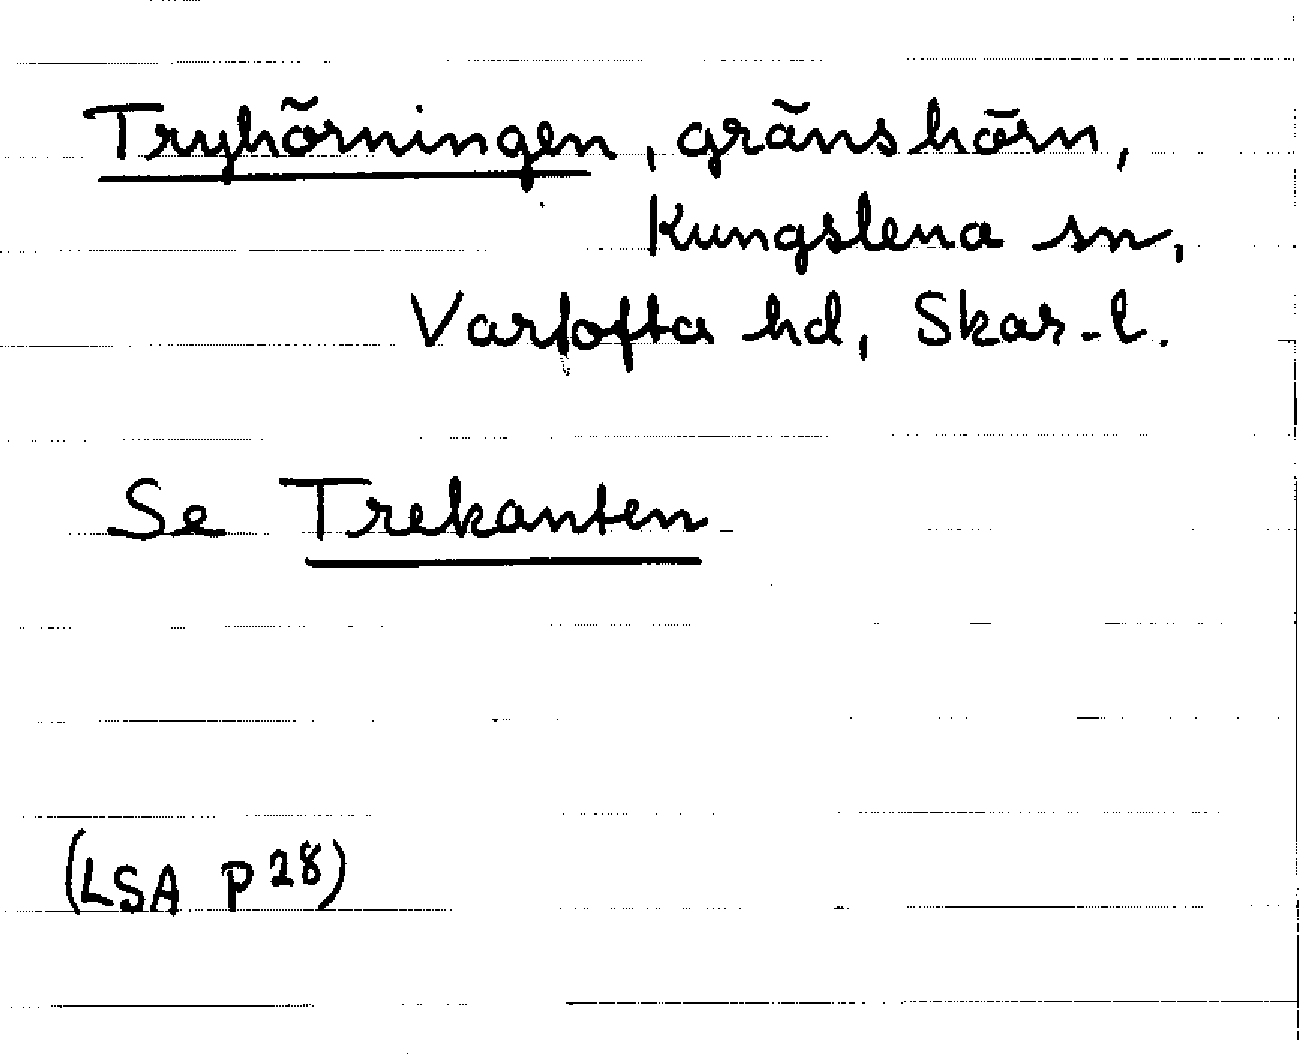 Tryhörningen, gränshörn,
Kungslena sn,
Vartofta hd, Skar-l.
Se Trekanten
(LSA P 28)